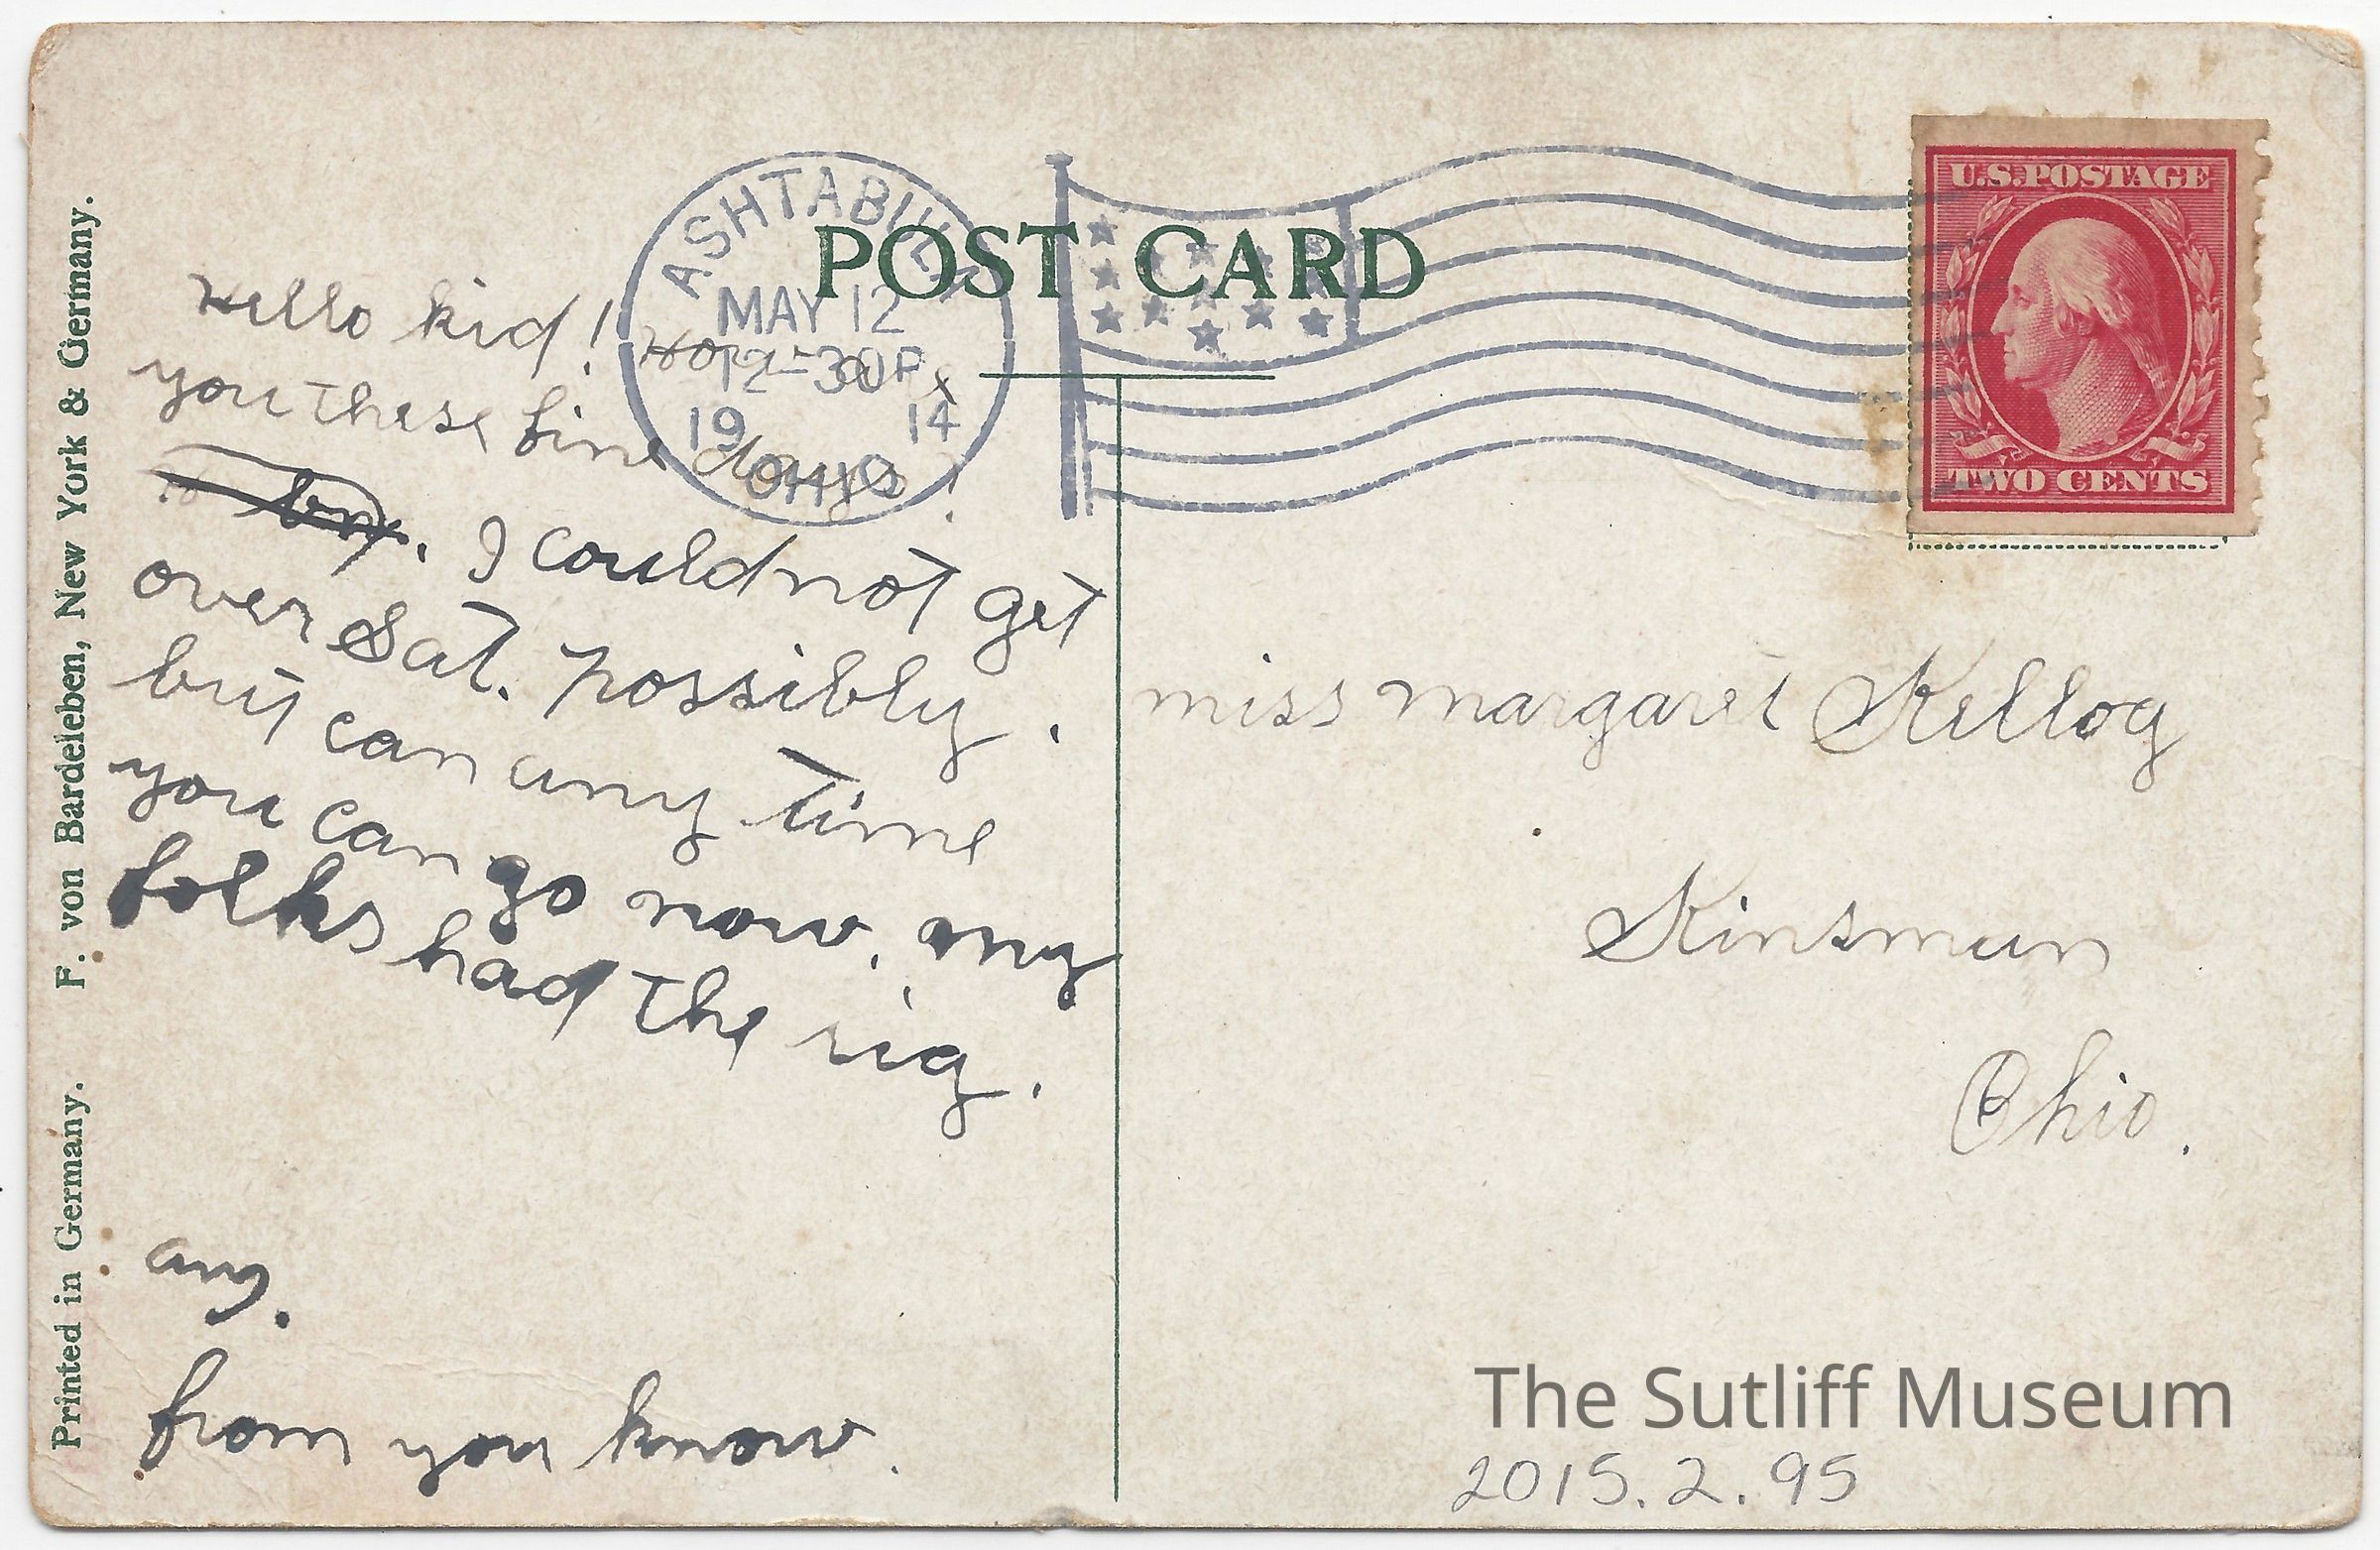 POST CARD
ASHTABULA
MAY 12
12-30P
19 14
OHIO
U.S. POSTAGE
TWO CENTS
Hello kid!
you these fine days!
I could not get
over Sat. possibly.
but can any time
you can go now, my
folks had the rig.
from you know.
miss margaret Kellog
Kinsman
Ohio.
The Sutliff Museum
2015.2.95
Printed in Germany. F. von Bardeleben, New York & Germany.